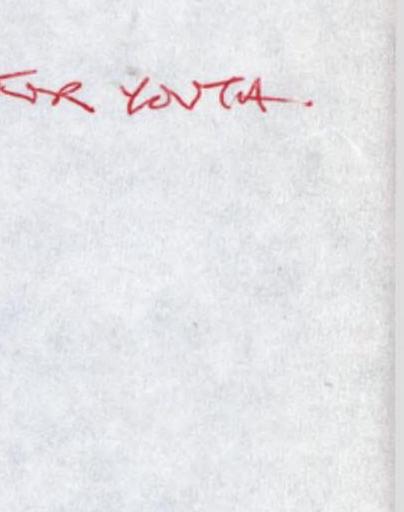 FOR YOUTH.